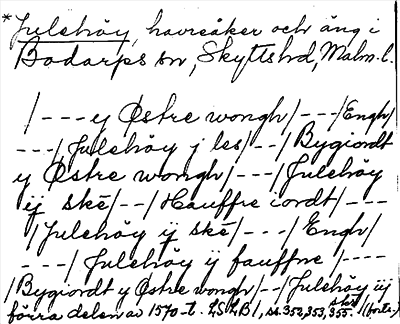 *Julehöy, havreåker och äng i
Bodarps sn, Skyttshd, Malm. l.
/---y Østre wongh/---/Engh/
---/Julehöy j les/--/Bygiordt
y Østre wongh/---/Julehöy
ij ske/--/Hauffre iordt/---
/Julehöy ij ske/---/Engh/
---/Julehöy ij fauffre/----
/Bygiordt y Østre wongh/--/Julehöy iij
förra delen av 1570-t. LSLB 1, ss. 352, 353, 355. (forts.)